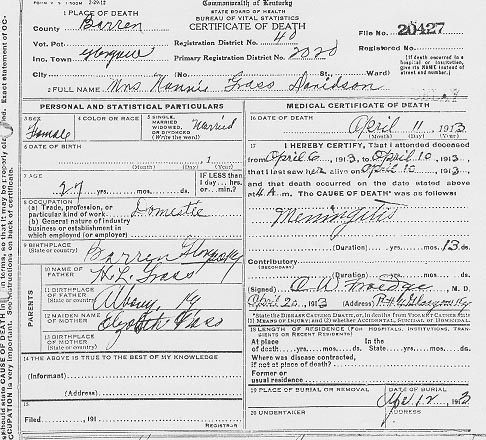 Commonwealth of Kentucky
STATE BOARD OF HEALTH
BUREAU OF VITAL STATISTICS
CERTIFICATE OF DEATH
1 PLACE OF DEATH
County Barren
File No. 20427
Vot. Pct.
Registration District No. 40
Registered No.
Inc. Town
Primary Registration District No. 2020
City (No. St., Ward)
[If death occurred in a hospital or institution, give its NAME instead of street and number.]
2 FULL NAME Mrs Nannie Grass Davidson
PERSONAL AND STATISTICAL PARTICULARS
3 SEX Female
4 COLOR OR RACE
5 SINGLE, MARRIED WIDOWED, OR DIVORCED (Write the word) Married
6 DATE OF BIRTH
(Month) (Day) (Year)
7 AGE 27 yrs. mos. ds.
IF LESS than 1 day... hrs. or... min.?
8 OCCUPATION
(a) Trade, profession, or particular kind of work Domestic
(b) General nature of industry business or establishment in which employed (or employer)
9 BIRTHPLACE (State or country) Barren
10 NAME OF FATHER H. L. Grass
PARENTS
11 BIRTHPLACE OF FATHER (State or country) Albany, Ky
12 MAIDEN NAME OF MOTHER
13 BIRTHPLACE OF MOTHER (State or country)
14 THE ABOVE IS TRUE TO THE BEST OF MY KNOWLEDGE
(Informant)
(Address)
15
Filed, 191
REGISTRAR
MEDICAL CERTIFICATE OF DEATH
16 DATE OF DEATH
April 11 1913
(Month) (Day) (Year)
17 I HEREBY CERTIFY, That I attended deceased
from April 6, 1913, to April 10 1913,
that I last saw her alive on April 10, 1913,
and that death occurred on the date stated above
at 4 A.m. The CAUSE OF DEATH* was as follows:
Meningitis
(Duration) yrs. mos. 13 ds.
Contributory (SECONDARY)
(Duration) yrs. mos. ds.
(Signed) M. D.
April 20, 1913 (Address) Glasgow Ky
* State the DISEASE CAUSING DEATH, or, in deaths from VIOLENT CAUSES state (1) MEANS OF INJURY; and (2) whether ACCIDENTAL, SUICIDAL or HOMICIDAL.
18 LENGTH OF RESIDENCE (FOR HOSPITALS, INSTITUTIONS, TRANSIENTS OR RECENT RESIDENTS)
At place of death yrs. mos. ds. In the State yrs. mos. ds.
Where was disease contracted, if not at place of death?
Former or usual residence
19 PLACE OF BURIAL OR REMOVAL
DATE OF BURIAL
Apr 12 1913
20 UNDERTAKER
ADDRESS